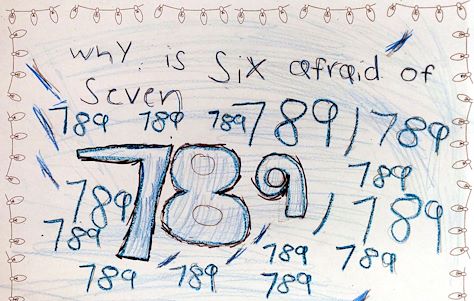 why is Six afraid of
Seven
789 789 789 789, 789
789
789 789, 789
789
789 789
789 789 789 789